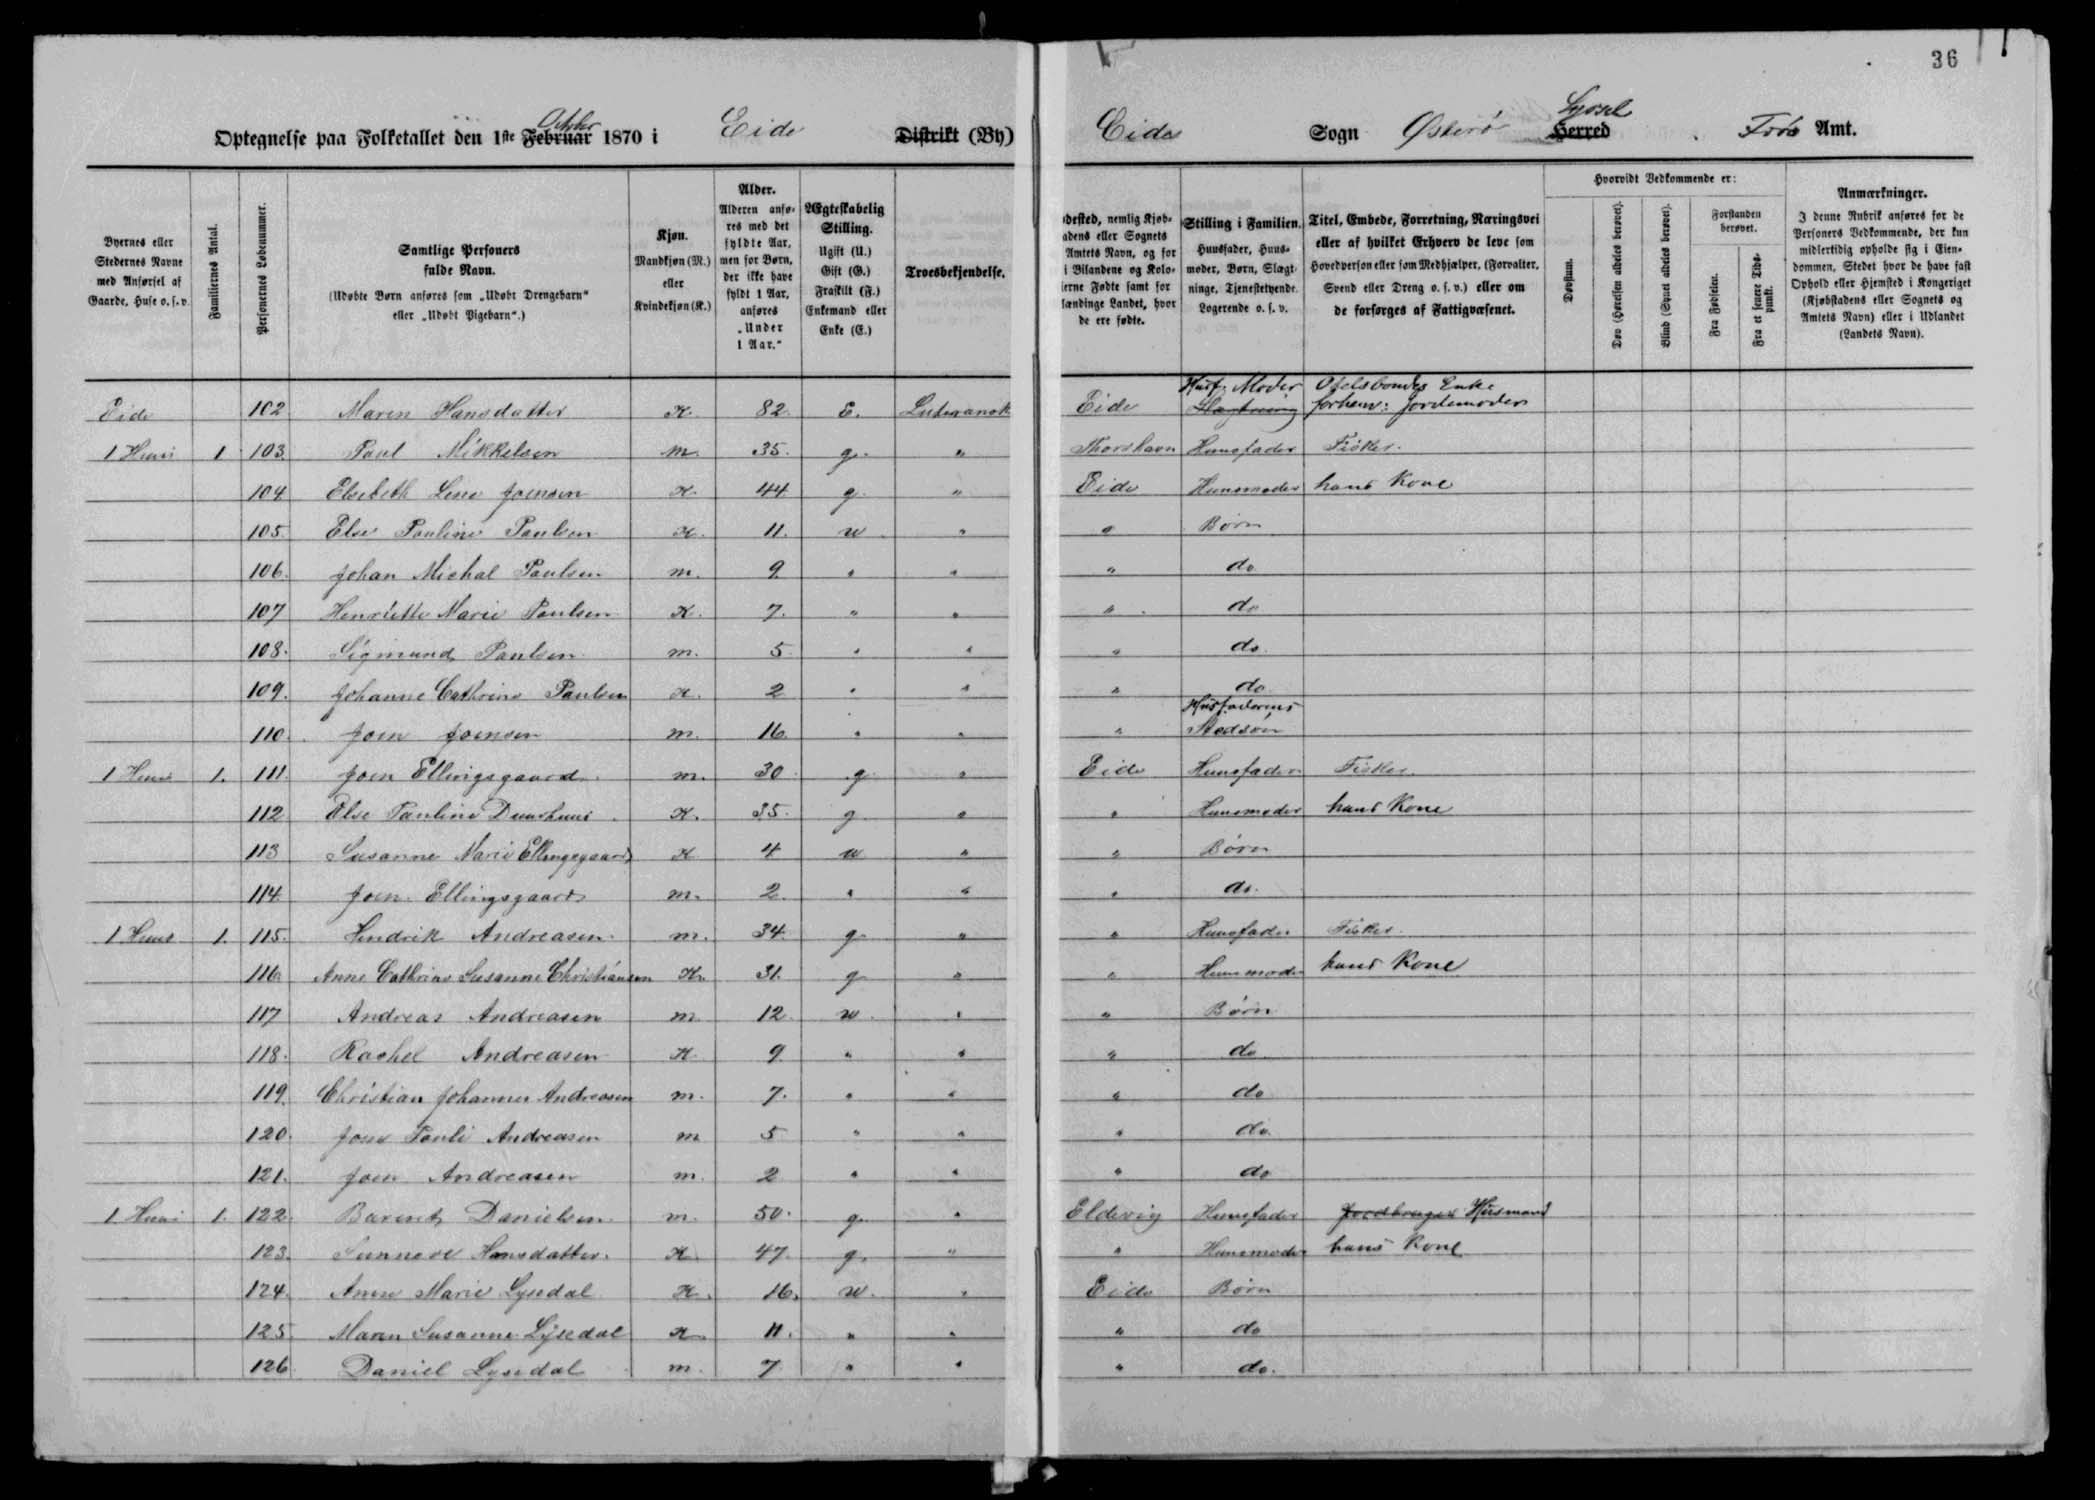 36
Optegnelse paa Folketallet den 1ste Februar October 1870 i Eide Distrikt (By)
Eide Sogn Østerø Herred Syssel Frøs Amt.
Byernes eller Stedernes Navne med Anførsel af Gaarde, Huse o. s. v.
Familiernes Antal.
Personernes Løbenummer.
Samtlige Personers fulde Navn.
(Udøbte Børn anføres som „Udøbt Drengebarn“ eller „Udøbt Pigebarn“.)
Kjøn. Mandkjøn (M.) eller Kvindekjøn (K.)
Alder. Alderen anføres med det fyldte Aar, men for Børn, der ikke have fyldt 1 Aar, anføres „Under 1 Aar.“
Ægteskabelig Stilling. Ugift (U.) Gift (G.) Fraskilt (F.) Enkemand eller Enke (E.)
Troesbekjendelse.
desteð, nemlig Kjøb-
adens eller Sognets
Amtets Navn, og for
i Bilandene og Kolo-
ierne Fødte samt for
lændinge Landet, hvor
de ere fødte.
Stilling i Familien. Huusfader, Huusmoder, Børn, Slægtninge, Tjenestetyende, Logerende o. s. v.
Titel, Embede, Forretning, Næringsvei eller af hvilket Erhverv de leve som Hovedperson eller som Medhjælper, (Forvalter, Svend eller Dreng o. s. v.) eller om de forsørges af Fattigvæsenet.
Hvorvidt Vedkommende er:
Døvstum.
Døv (Hørelsen aldeles berøvet).
Blind (Synet aldeles berøvet).
Forstanden berøvet.
Fra Fødselen.
Fra et senere Tidspunkt.
Anmærkninger.
I denne Rubrik anføres for de Personers Vedkommende, der kun midlertidig opholde sig i Eiendommen, Stedet hvor de have fast Ophold eller Hjemsted i Kongeriget (Kjøbstadens eller Sognets og Amtets Navn) eller i Udlandet (Landets Navn).
Eide 102 Maren Hansdatter K. 82. E. Luteransk Eide Husf. Moder Slægtning Odelsbondes Enke forhenv: Jordemoder
1 Huus 1 103. Paul Mikkelsen m. 35. g. " Thorshavn Huusfader Fisker.
104 Elsebeth Lene Joensen K. 44 g. " Eide Huusmoder hans Kone
105. Else Pauline Paulsen K. 11. u. " " Børn
106. Johan Michal Paulsen m. 9 " " " do
107 Henriette Marie Paulsen K. 7. " " " do
108. Sigmund Paulsen m. 5. " " " do.
109. Johanne Cathrine Paulsen K. 2 " " " do
110. Joen Joensen m. 16. " " " Husfaderens Stedsön
1 Huus 1. 111. Joen Ellingsgaard m. 30. g. " Eide Huusfader Fisker.
112 Else Pauline Duurhuus K. 35. g " " Huusmoder hans Kone
113 Susanne Marie Ellingsgaard K 4 u " " Børn
114 Joen Ellingsgaard m. 2 " " " do.
1 Huus 1. 115. Hendrik Andreasen m. 34. g. " " Huusfader Fisker.
116 Anne Cathrine Susanne Christiansen K. 31. g " " Huusmoder hans Kone
117 Andreas Andreasen m. 12. u. " " Børn
118. Rachel Andreasen K. 9. " " " do
119. Christian Johannes Andreasen m. 7. " " " do
120. Joen Pauli Andreasen m 5 " " " do.
121. Joen Andreasen m. 2 " " " do
1 Huus 1. 122. Barent Danielsen m. 50. g. " Eldevig Huusfader Jordbruger Husmand
123. Sunneve Hansdatter. K. 47. g. " " Huusmoder hans Kone
124. Anne Marie Lysedal K. 16. u. " Eide Børn
125 Maren Susanne Lysedal K 11. " " " do
126. Daniel Lysedal m. 7. " " " do.